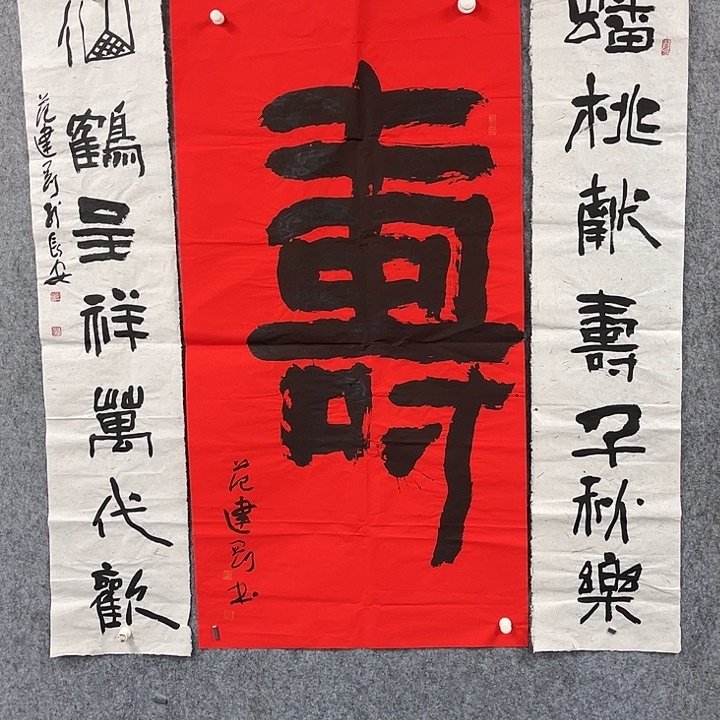 蟠桃献壽千秋樂
壽
范建剛书
仙鶴呈祥萬代歡
范建剛於長安